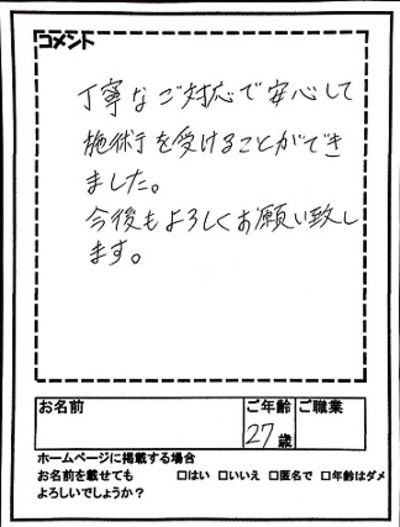 コメント
丁寧なご対応で安心して
施術を受けることができ
ました。
今後もよろしくお願い致し
ます。
お名前 ご年齢 ご職業
27歳
ホームページに掲載する場合
お名前を載せても □はい □いいえ □匿名で □年齢はダメ
よろしいでしょうか？